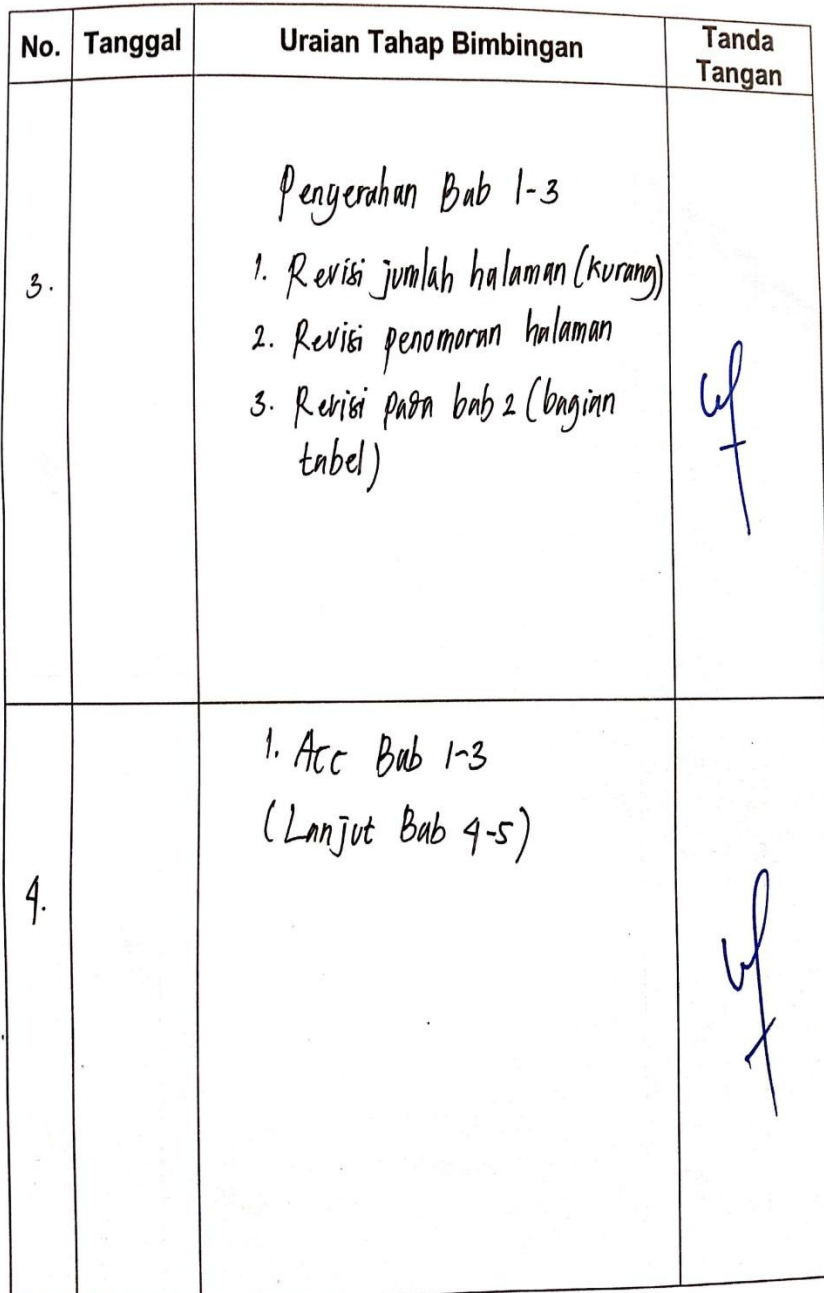 No. Tanggal Uraian Tahap Bimbingan Tanda Tangan
Pengerahan Bab 1-3
3. 1. Revisi jumlah halaman (kurang)
2. Revisi penomoran halaman
3. Revisi pada bab 2 (bagian
tabel)
1. Acc Bab 1-3
(Lanjut Bab 4-5)
4.